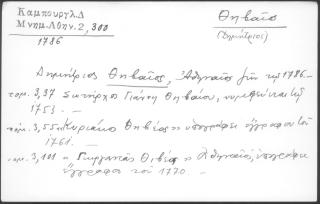 Καμπουργλ.Δ
Μνημ.Αθην. 2, 300
1786
Θηβαῖος
(Δημήτριος)
Δημήτριος Θηβαῖος, Ἀθηναῖος ζῶν τῷ 1786.—
τομ. 3, 37 Σωτῆρος Γιάννη Θηβαίου, τῇ
1753 —
τομ. 3, 55 Κυριάκο Θηβέος ὑπογράφει ἔγγραφον τοῦ
1761. —
τομ. 3, 101 Γιωργάκις Θιβέος Ἀθηναῖος, ὑπογράφει
ἔγγραφο τοῦ 1770 —